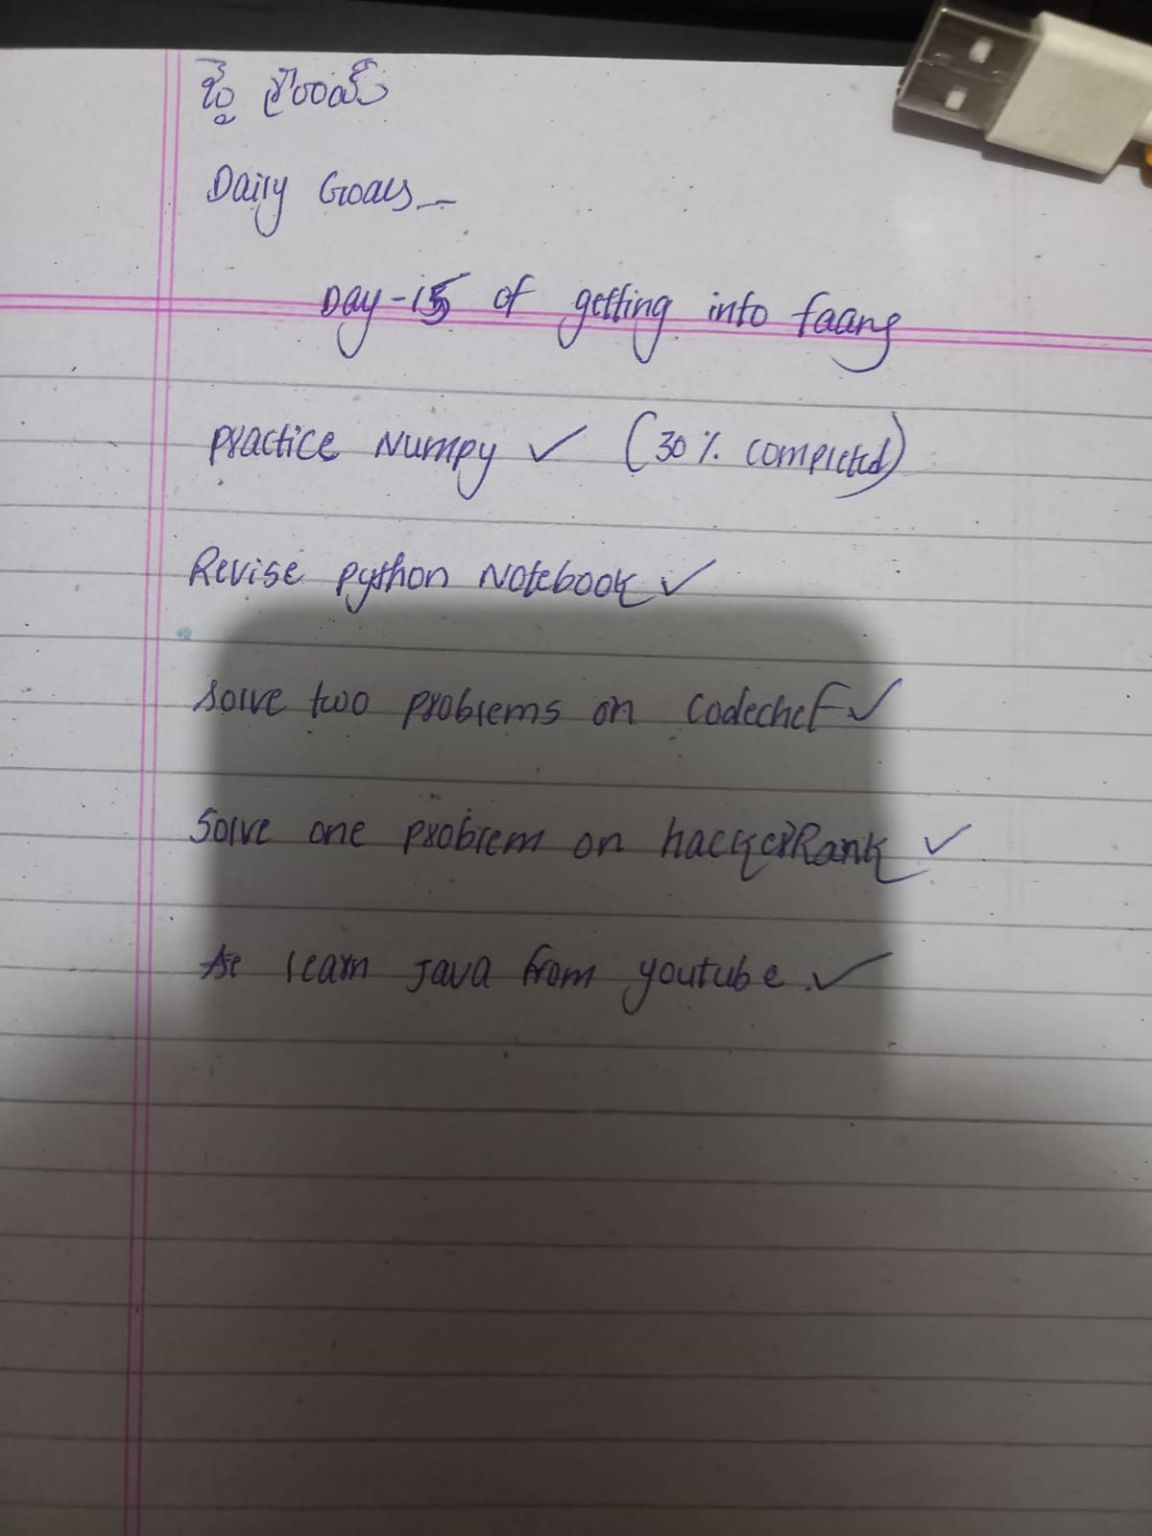 జై శ్రీరామ్
Daily Goals -
Day-15 of getting into faang
practice Numpy ✓ (30% completed)
Revise python Notebook ✓
Solve two problems on codechef ✓
Solve one problem on hackerRank ✓
learn java from youtube ✓